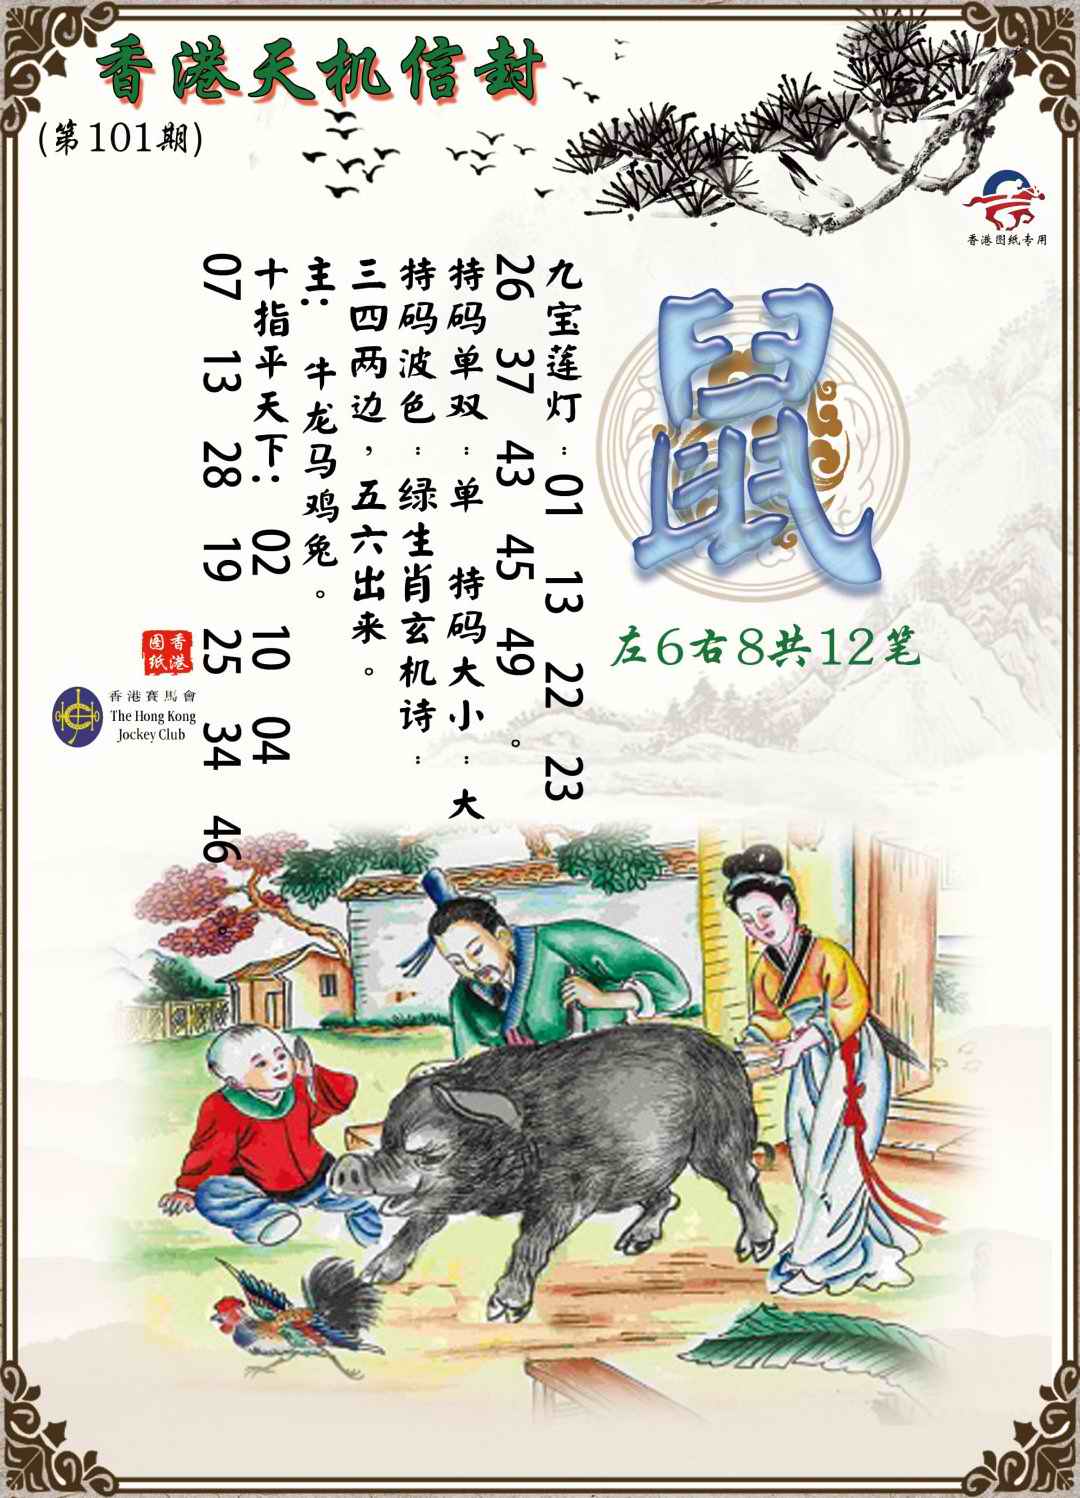 香港天机信封
(第101期)
香港图纸专用
鼠
左6右8共12笔
九宝莲灯：01 13 22 23
26 37 43 45 49。
特码单双：单 特码大小：大
特码波色：绿生肖玄机诗：
三四两边，五六出来。
主：牛龙马鸡兔。
十指平天下：02 10 04
07 13 28 19 25 34 46。
香港图纸
香港賽馬會
The Hong Kong
Jockey Club